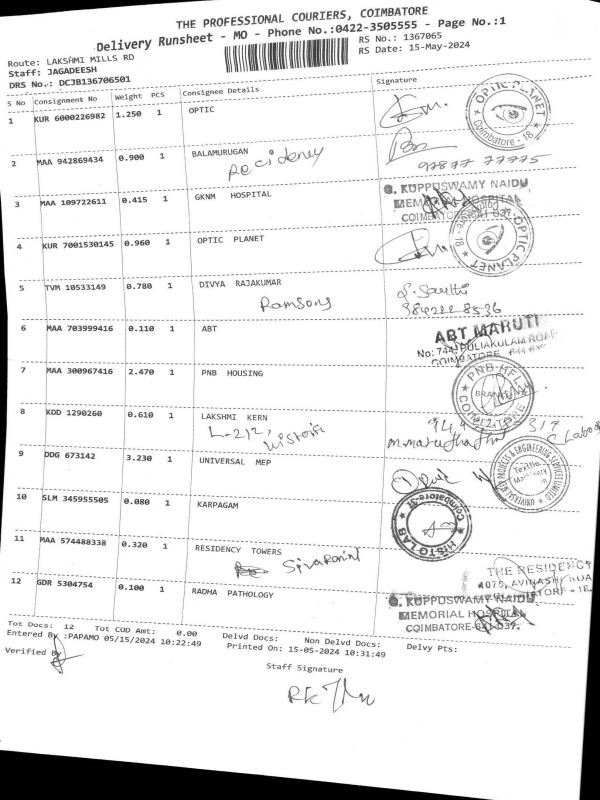 THE PROFESSIONAL COURIERS, COIMBATORE
Delivery Runsheet - MO - Phone No.:0422-3505555 - Page No.:1
RS No.: 1367065
Route: LAKSHMI MILLS RD
RS Date: 15-May-2024
Staff: JAGADEESH
DRS No.: DC3B136706501
S No Consignment No Weight PCS Consignee Details Signature
1 KUR 6000226982 1.250 1 OPTIC
OPTIC PLANET
Coimbatore - 18
2 MAA 942869434 0.900 1 BALAMURUGAN
97877 77775
3 MAA 109722611 0.415 1 GKNM HOSPITAL
G. KUPPUSWAMY NAIDU
MEMORIAL HOSPITAL
COIMBATORE-641 037.
4 KUR 7001530145 0.960 1 OPTIC PLANET
OPTIC PLANET
Coimbatore - 18
5 TVM 10533149 0.780 1 DIVYA RAJAKUMAR
Ramsons
984222 8536
6 MAA 703999416 0.110 1 ABT
ABT MARUTI
No: 744, PULIAKULAM ROAD
COIMBATORE
7 MAA 300967416 2.470 1 PNB HOUSING
PNB HFL
BRANCH
COIMBATORE
8 KOD 1290260 0.610 1 LAKSHMI KERN
L-212,
9 DDG 673142 3.230 1 UNIVERSAL MEP
UNIVERSAL MEP PROJECTS & ENGINEERING SERVICES LIMITED
Textile
Machinery
10 SLM 345955505 0.080 1 KARPAGAM
HISTO LAB
Coimbatore
11 MAA 574488338 0.320 1 RESIDENCY TOWERS
THE RESIDENCY
1075, AVINASHI ROAD
12 GDR 5304754 0.100 1 RADHA PATHOLOGY
G. KUPPUSWAMY NAIDU
MEMORIAL HOSPITAL
COIMBATORE-641 037.
Tot Docs: 12 Tot COD Amt: 0.00 Delvd Docs: Non Delvd Docs: Delvy Pts:
Entered By :PAPAMO 05/15/2024 10:22:49 Printed On: 15-05-2024 10:31:49
Verified By
Staff Signature